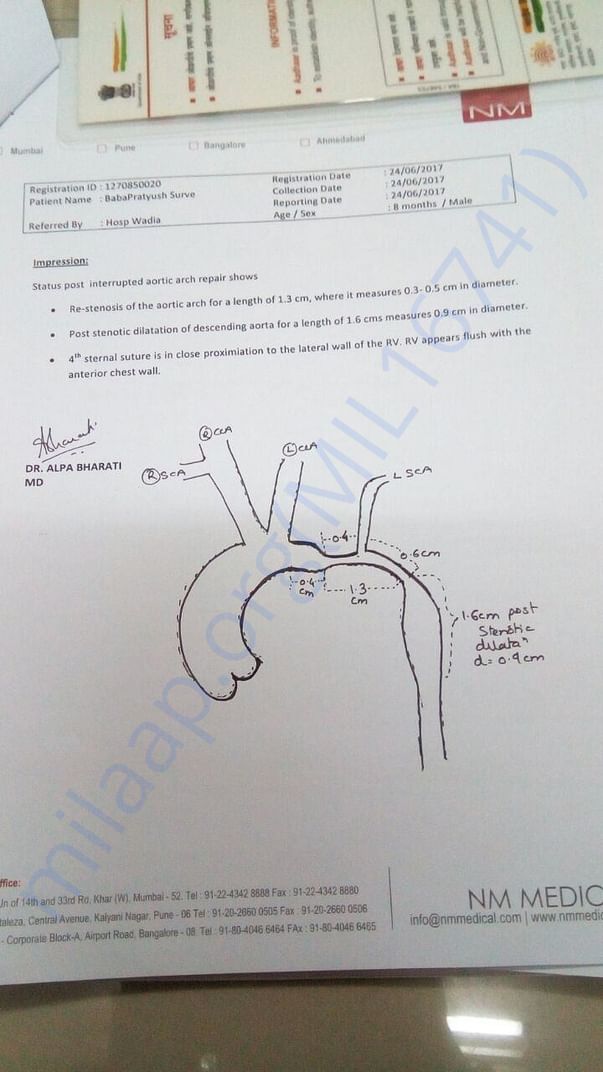 सूचना
INFORMATI
NM
Mumbai
Pune
Bangalore
Ahmedabad
Registration ID : 1270850020
Patient Name : BabaPratyush Surve
Referred By : Hosp Wadia
Registration Date : 24/06/2017
Collection Date : 24/06/2017
Reporting Date : 24/06/2017
Age / Sex : 8 months / Male
Impression:
Status post interrupted aortic arch repair shows
• Re-stenosis of the aortic arch for a length of 1.3 cm, where it measures 0.3- 0.5 cm in diameter.
• Post stenotic dilatation of descending aorta for a length of 1.6 cms measures 0.9 cm in diameter.
• 4th sternal suture is in close proximiation to the lateral wall of the RV. RV appears flush with the
anterior chest wall.
DR. ALPA BHARATI
MD
R CCA
L CCA
R SCA
L SCA
0.4
0.6cm
0.4
cm
1.3
cm
1.6cm post
Stenotic
dilatan
d= 0.9cm
milaap.org(MIL16741)
ffice:
Jn of 14th and 33rd Rd, Khar (W). Mumbai - 52. Tel : 91-22-4342 8888 Fax : 91-22-4342 8880
taleza, Central Avenue, Kalyani Nagar, Pune - 06 Tel : 91-20-2660 0505 Fax : 91-20-2660 0506
- Corporate Block-A, Airport Road, Bangalore - 08. Tel : 91-80-4046 6464 FAx : 91-80-4046 6465
NM MEDIC
info@nmmedical.com | www.nmmedic